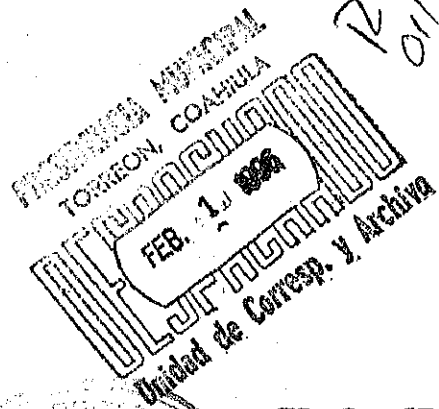 PRESIDENCIA MUNICIPAL
TORREON, COAHUILA
DESPACHADO
FEB. 1 1996
Unidad de Corresp. y Archivo